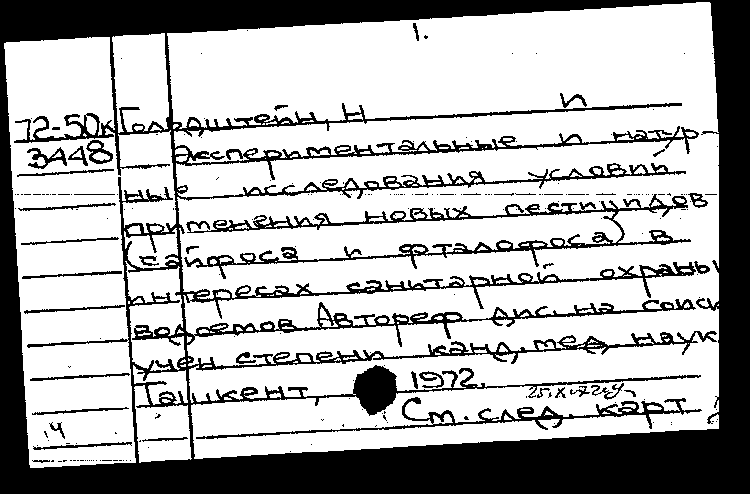 1.
72-50к Гольдштейн, Н И
3448 Экспериментальные и натур-
ные исследования условий
применения новых пестицидов
(сайфоса и фталофоса) в
интересах санитарной охраны
водоемов Автореф дис. на соиск
учен степени канд. мед наук
Ташкент, 1972.
См. след. карт